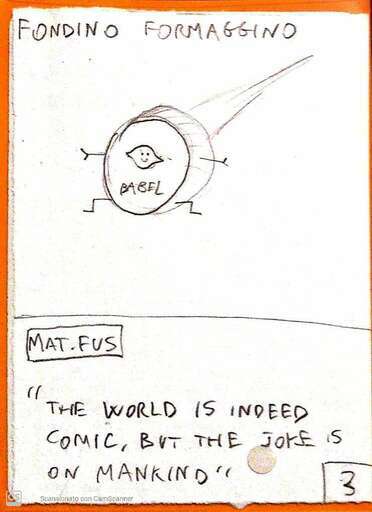 FONDINO FORMAGGINO
BABEL
MAT.FUS
"THE WORLD IS INDEED
COMIC, BUT THE JOKE IS
ON MANKIND"
3
CS Scansionato con CamScanner